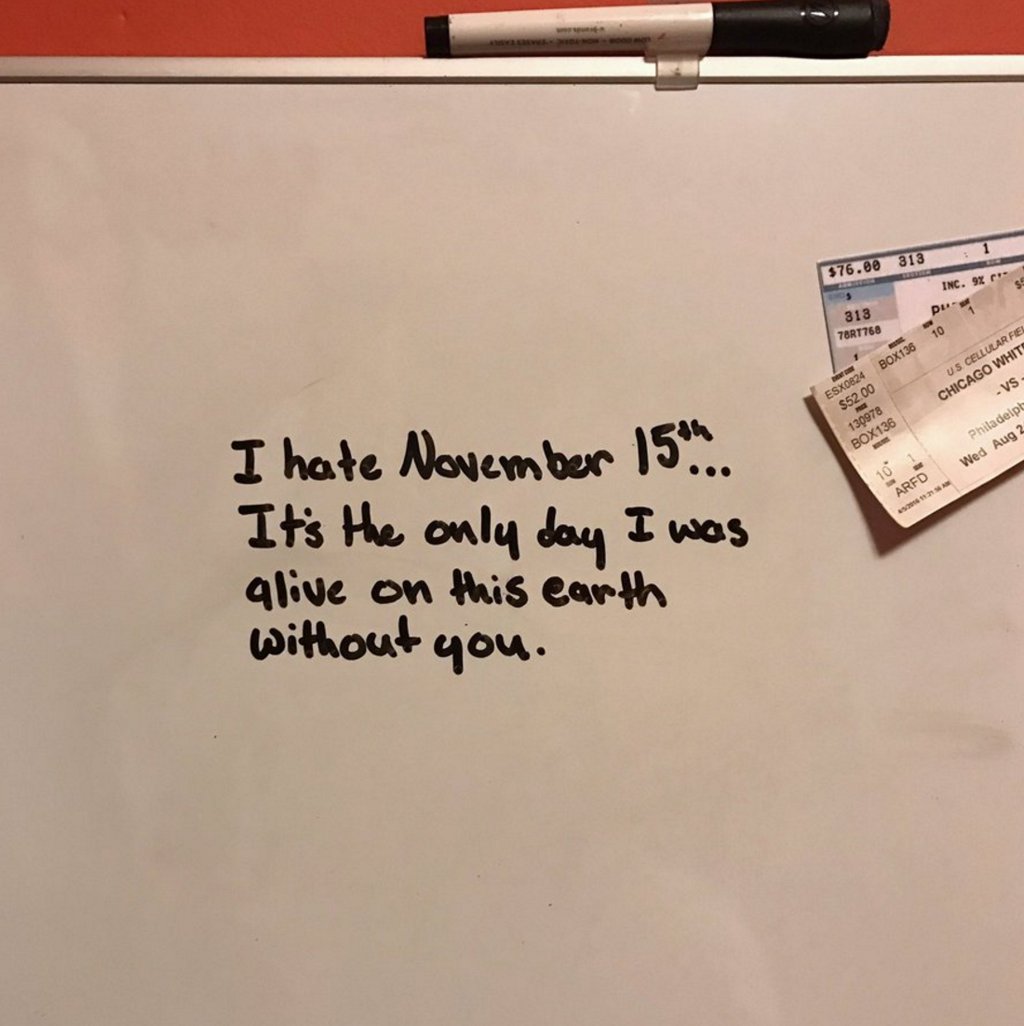 LOW ODOR • NON-TOXIC • ERASES EASILY
I hate November 15th...
It's the only day I was
alive on this earth
without you.
$76.00 313 1
ADMISSION
SECTION
INC. 9% CI
$
313
78RT768
1
ESX0824
$52.00
130978
BOX136
10 1
ARFD
BOX136
10
1
U.S. CELLULAR FIE
CHICAGO WHIT
- VS -
Philadelph
Wed Aug 2